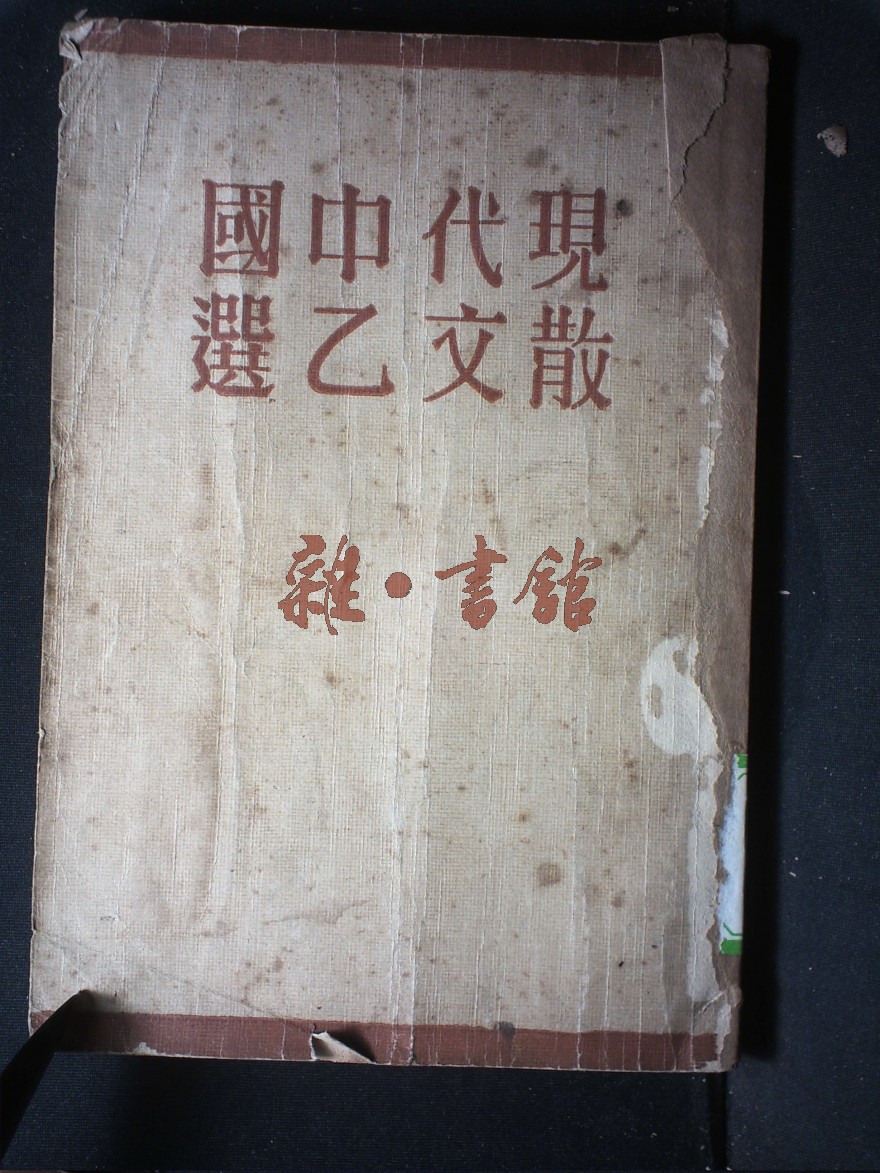 現代中國
散文乙選
雜•書舘